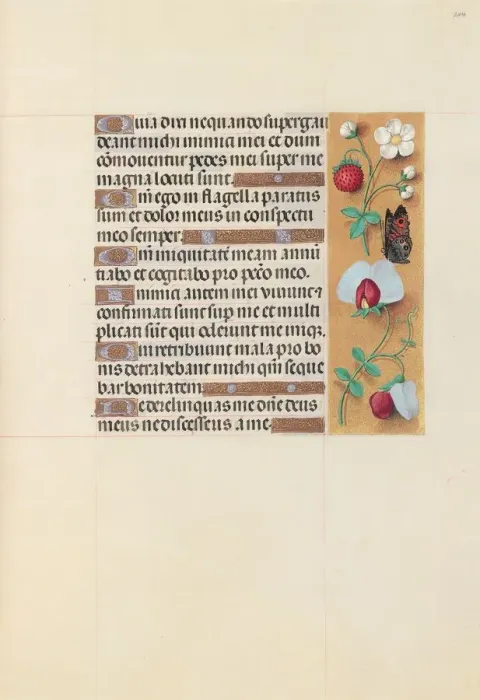 Quia dixi nequando supergau
deant michi inimici mei et dum
cōmouentur pedes mei super me
magna locuti sunt.
Qm̄ ego in flagella paratus
sum et dolor meus in conspectu
meo semper.
Qm̄ iniquitatē meam annū
tiabo et cogitabo pro pcc̄o meo.
Inimici autem mei viuunt ⁊
confirmati sunt sup̄ me et multi
plicati sūt qui oderunt me iniq̄.
Qui retribuunt mala pro bo
nis detrahebant michi qm̄ seque
bar bonitatem
Ne derelinquas me dn̄e deus
meus ne discesseris a me.